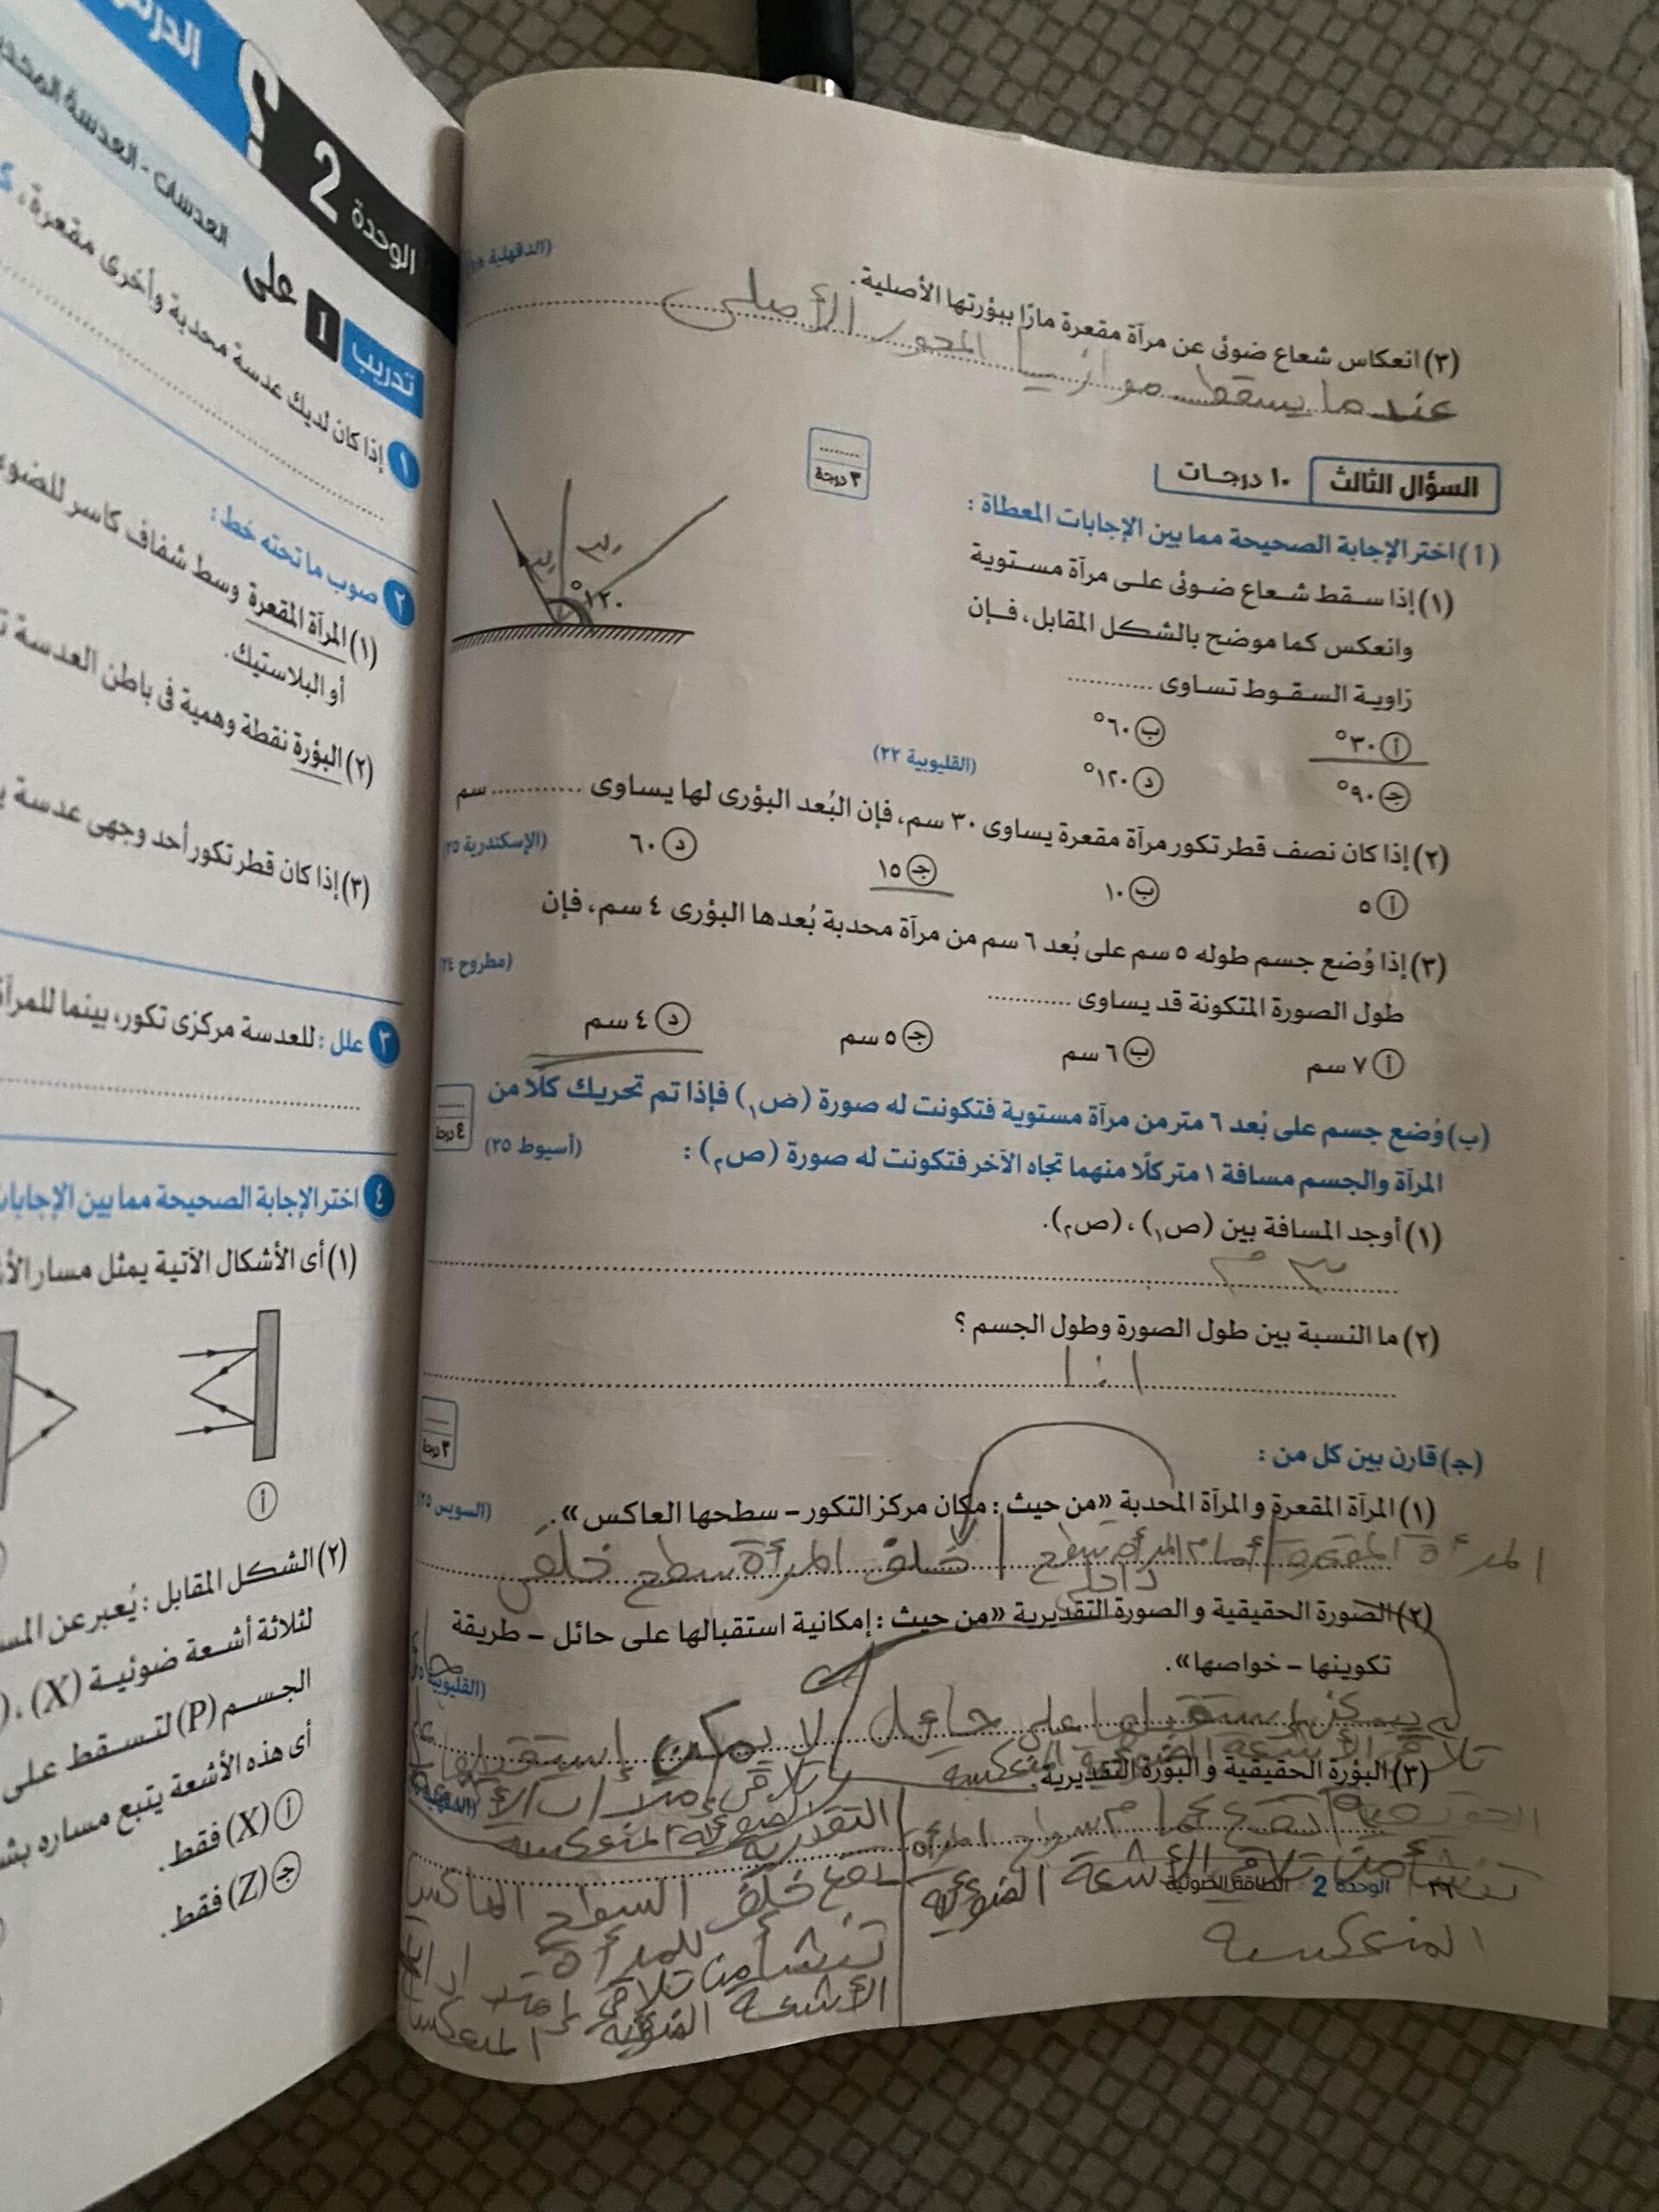 (٣) انعكاس شعاع ضوئى عن مرآة مقعرة مارًا ببؤرتها الأصلية.
(الدقهلية
عندما يسقط موازيا المحور الأصلى
السؤال الثالث ١٠ درجات
٣ درجة
(أ) اختر الإجابة الصحيحة مما بين الإجابات المعطاة :
(١) إذا سقط شعاع ضوئى على مرآة مستوية
وانعكس كما موضح بالشكل المقابل، فإن
زاوية السقوط تساوى ............
١٢٠°
أ ٣٠° ب ٦٠°
ج ٩٠° د ١٢٠°
(القليوبية ٢٢)
(٢) إذا كان نصف قطر تكور مرآة مقعرة يساوى ٣٠ سم، فإن البُعد البؤرى لها يساوى ............ سم
(الإسكندرية ٢٥)
أ ٥ ب ١٠ ج ١٥ د ٦٠
(٣) إذا وُضع جسم طوله ٥ سم على بُعد ٦ سم من مرآة محدبة بُعدها البؤرى ٤ سم، فإن
طول الصورة المتكونة قد يساوى ............
(مطروح ٢٤)
أ ٧ سم ب ٦ سم ج ٥ سم د ٤ سم
(ب) وُضع جسم على بُعد ٦ متر من مرآة مستوية فتكونت له صورة (ص١) فإذا تم تحريك كلًا من
المرآة والجسم مسافة ١ متر كلًا منهما تجاه الآخر فتكونت له صورة (ص٢) :
(أسيوط ٢٥)
٤ درجة
(١) أوجد المسافة بين (ص١) ، (ص٢).
٣ م
(٢) ما النسبة بين طول الصورة وطول الجسم ؟
١ : ١
(ج) قارن بين كل من :
٣ درجة
(١) المرآة المقعرة و المرآة المحدبة «من حيث : مكان مركز التكور – سطحها العاكس».
(السويس ٢٥)
المرأة المقعرة أمام المرأة سطح خلف المرأة سطح خلفى
داخلى
(٢) الصورة الحقيقية و الصورة التقديرية «من حيث : إمكانية استقبالها على حائل – طريقة
تكوينها – خواصها».
(القليوبية
يمكن إستقبالها على حائل لا يمكن إستقبالها
تلاقى الأشعة الضوئية المنعكسة
(٣) البؤرة الحقيقية و البؤرة التقديرية.
الحقيقية تقع أمام سطح المرأة
التقدرية تقع خلف السطح العاكس للمرأة
تنشأ من تلاقى الأشعة الضوئية
المنعكسة
تنشأ من تلاقى إمتدادات
الأشعة الضوئية المنعكسة
٢٦ الوحدة 2 الطاقة الضوئية
الدرس
الوحدة 2
تدريب 1 على
العدسات - العدسة المحد
١ إذا كان لديك عدسة محدبة وأخرى مقعرة،
٢ صوب ما تحته خط :
(١) المرآة المقعرة وسط شفاف كاسر للضوء
أو البلاستيك.
(٢) البؤرة نقطة وهمية فى باطن العدسة
(٣) إذا كان قطر تكور أحد وجهى عدسة
٣ علل : للعدسة مركزى تكور، بينما للمرآة
٤ اختر الإجابة الصحيحة مما بين الإجابات
(١) أى الأشكال الآتية يمثل مسار الأ
أ
(٢) الشكل المقابل : يُعبر عن المس
لثلاثة أشعة ضوئية (X) ، (
الجسم (P) لتسقط على
أى هذه الأشعة يتبع مساره بش
أ (X) فقط.
ج (Z) فقط.